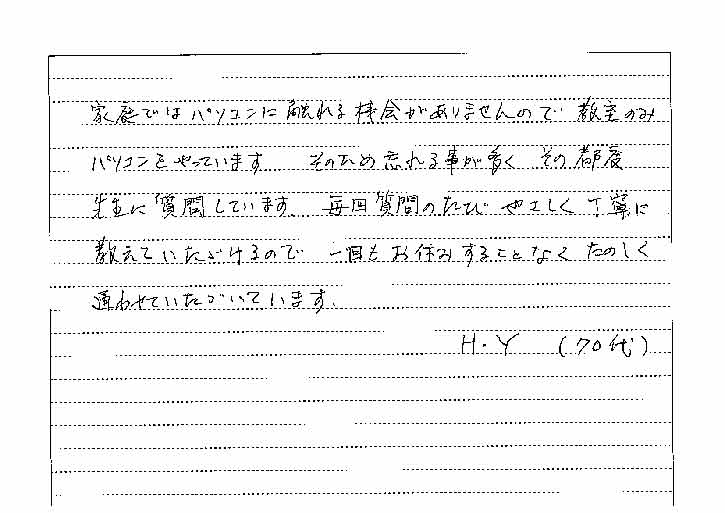 家庭ではパソコンに触れる機会がありませんので 教室のみ
パソコンをやっています そのため忘れる事が多く その都度
先生に質問しています。毎回質問のたび やさしく丁寧に
教えていただけるので 一回もお休みすることなく たのしく
通わせていただいています。
H・Y (70代)